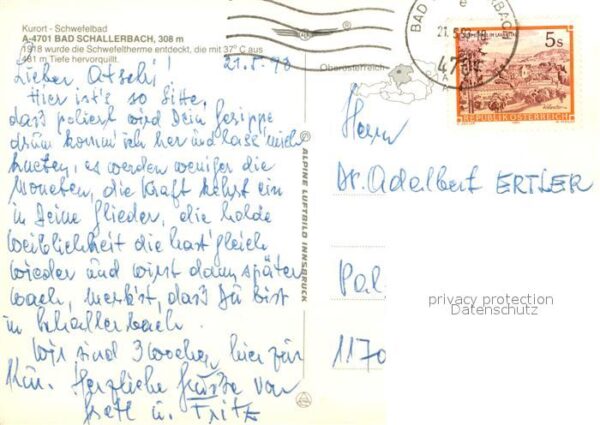 Kurort - Schwefelbad
A-4701 BAD SCHALLERBACH, 308 m
1918 wurde die Schwefeltherme entdeckt, die mit 37° C aus
481 m Tiefe hervorquillt.
21.5.98
Lieber Atschi!
Hier ist's so Sitte,
daß poliert wird Dein Gerippe
drum komm ich her und lass mich
kneten, es werden weniger die
Moneten, die Kraft kehrt ein
in Deine Glieder, die holde
Weiblichkeit die hast gleich
wieder und wirst dann später
wach, merkst, daß Du bist
in Schallerbach.
Wir sind 3 Wochen hier zur
Kur. Herzliche Grüße von
Gretl u. Fritz
© ALPINE LUFTBILD INNSBRUCK
Oberösterreich
BAD SCHALLERBACH
21.5
4701
5s
REPUBLIK ÖSTERREICH
Herrn
Dr. Adalbert ERTLER
Pal
1170
privacy protection
Datenschutz